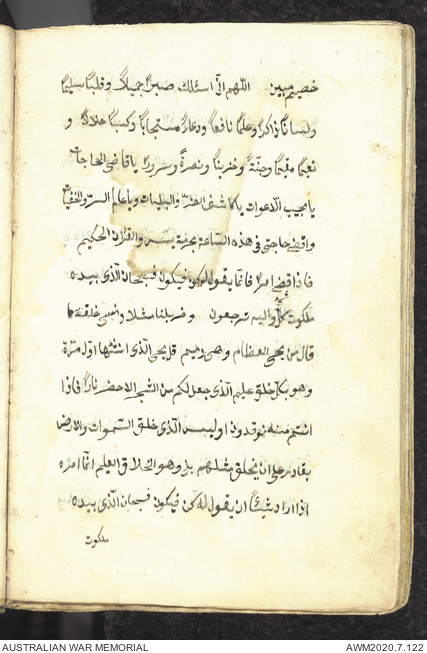 خصيم مبين اللهم انى اسئلك صبرا جميلا وقلبا سليما
ولسانا ذاكرا وعلما نافعا ودعاء مستجابا وكسبا حلالا و
نعيما مقيما وجنة وحريرا ونضرة وسرورا يا قاضى الحاجات
يا مجيب الدعوات يا كاشف الضر والبليات ويا عالم السر والخفيات
واقض حاجتى فى هذه الساعة بحرمة يس والقران الحكيم
فاذا قضى امرا فانما يقول له كن فيكون فسبحان الذى بيده
ملكوت كل شئ واليه ترجعون وضرب لنا مثلا ونسى خلقه
قال من يحى العظام وهى رميم قل يحى الذى انشأها اول مرة
وهو بكل خلق عليم الذى جعل لكم من الشجر الاخضر نارا فاذا
انتم منه توقدون اوليس الذى خلق السموات والارض
بقادر على ان يخلق مثلهم بلى وهو الخلاق العليم انما امره
اذا اراد شيئا ان يقول له كن فيكون فسبحان الذى بيده
ملكوت
AUSTRALIAN WAR MEMORIAL
AWM2020.7.122